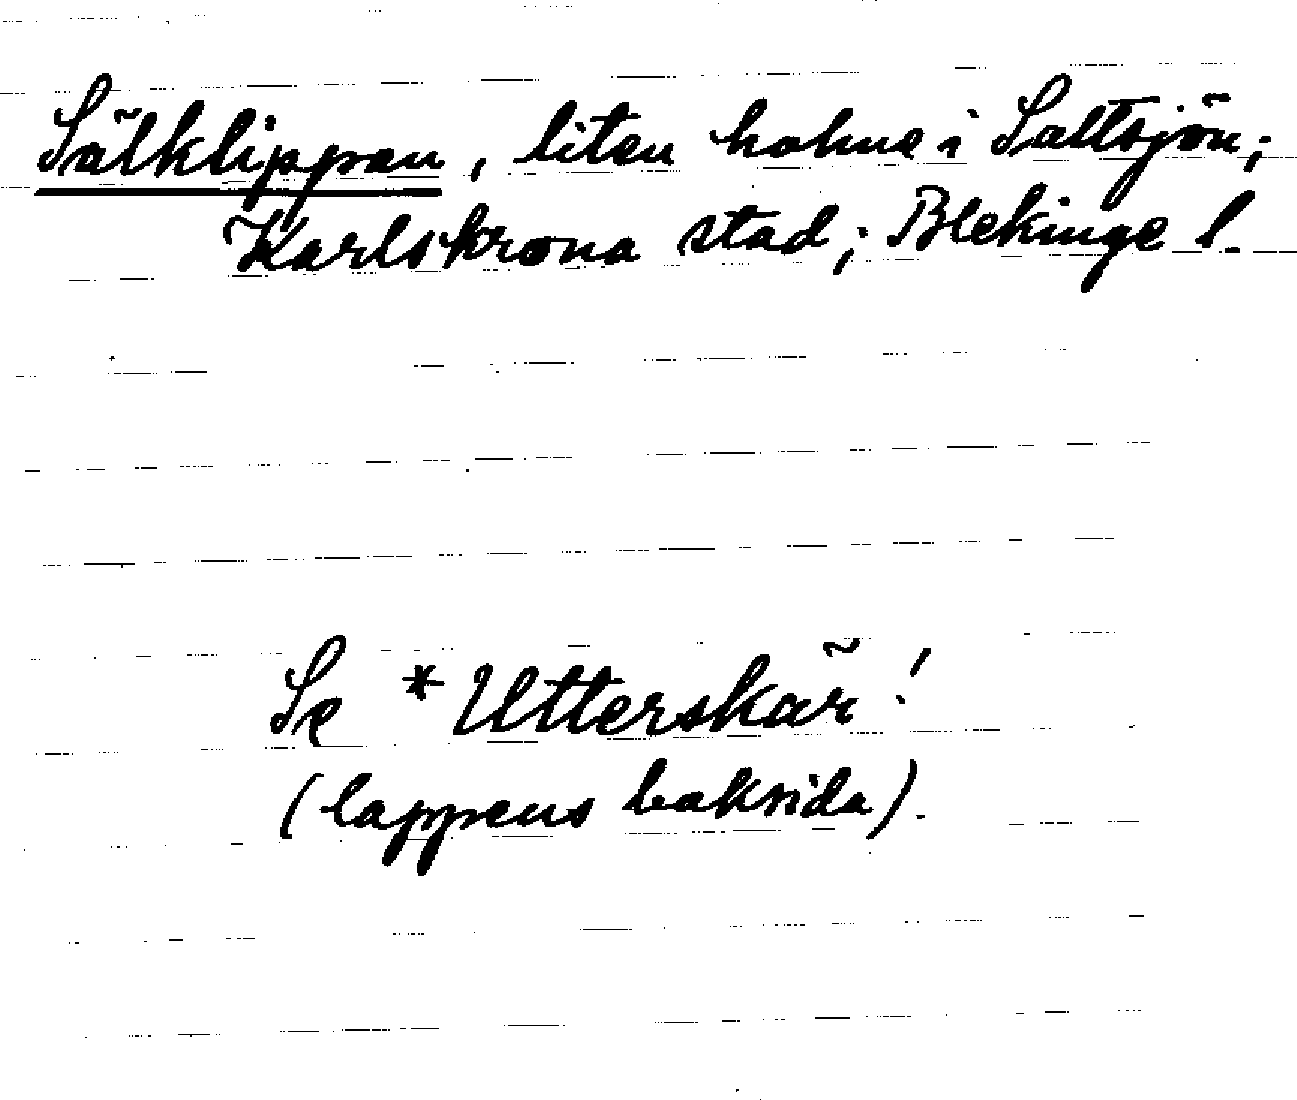 Sälklippan, liten holme i Saltsjön;
Karlskrona stad; Blekinge l.
Se *Utterskär!
(lappens baksida).